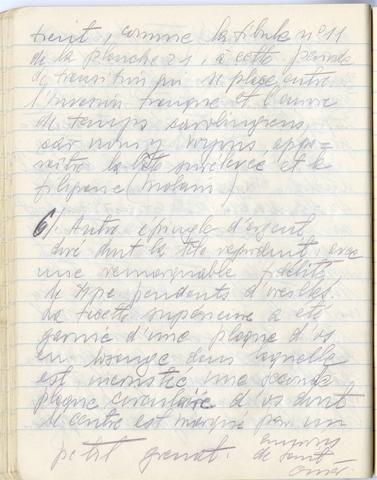 trait, comme la fibule n° 11
de la planche 21, à cette période
de transition qui se place entre
l'invasion franque et l'aurore
de temps carolingiens,
car nous y voyons appa=
raitre la tête et le
filigrane
6/. Autre épingle d'argent
doré dont la tête représente, avec
une remarquable fidélité
le type pendants d'oreilles.
La facette supérieure a été
garnie d'une plaque d'os
en losange dans laquelle
est incrustée une seconde
plaque circulaire d'os dont
le centre est marqué par un
petit grenat. environs
de Saint
Omer.